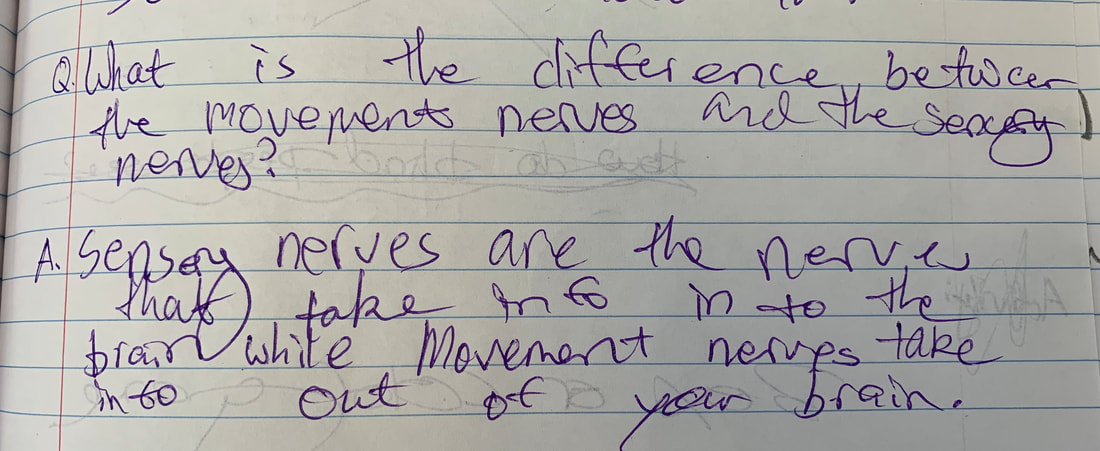 Q. What is the difference between
the movements nerves and the sensory
nerves?
A. Sensory nerves are the nerves
that take info in to the
brain while Movement nerves take
info out of your brain.